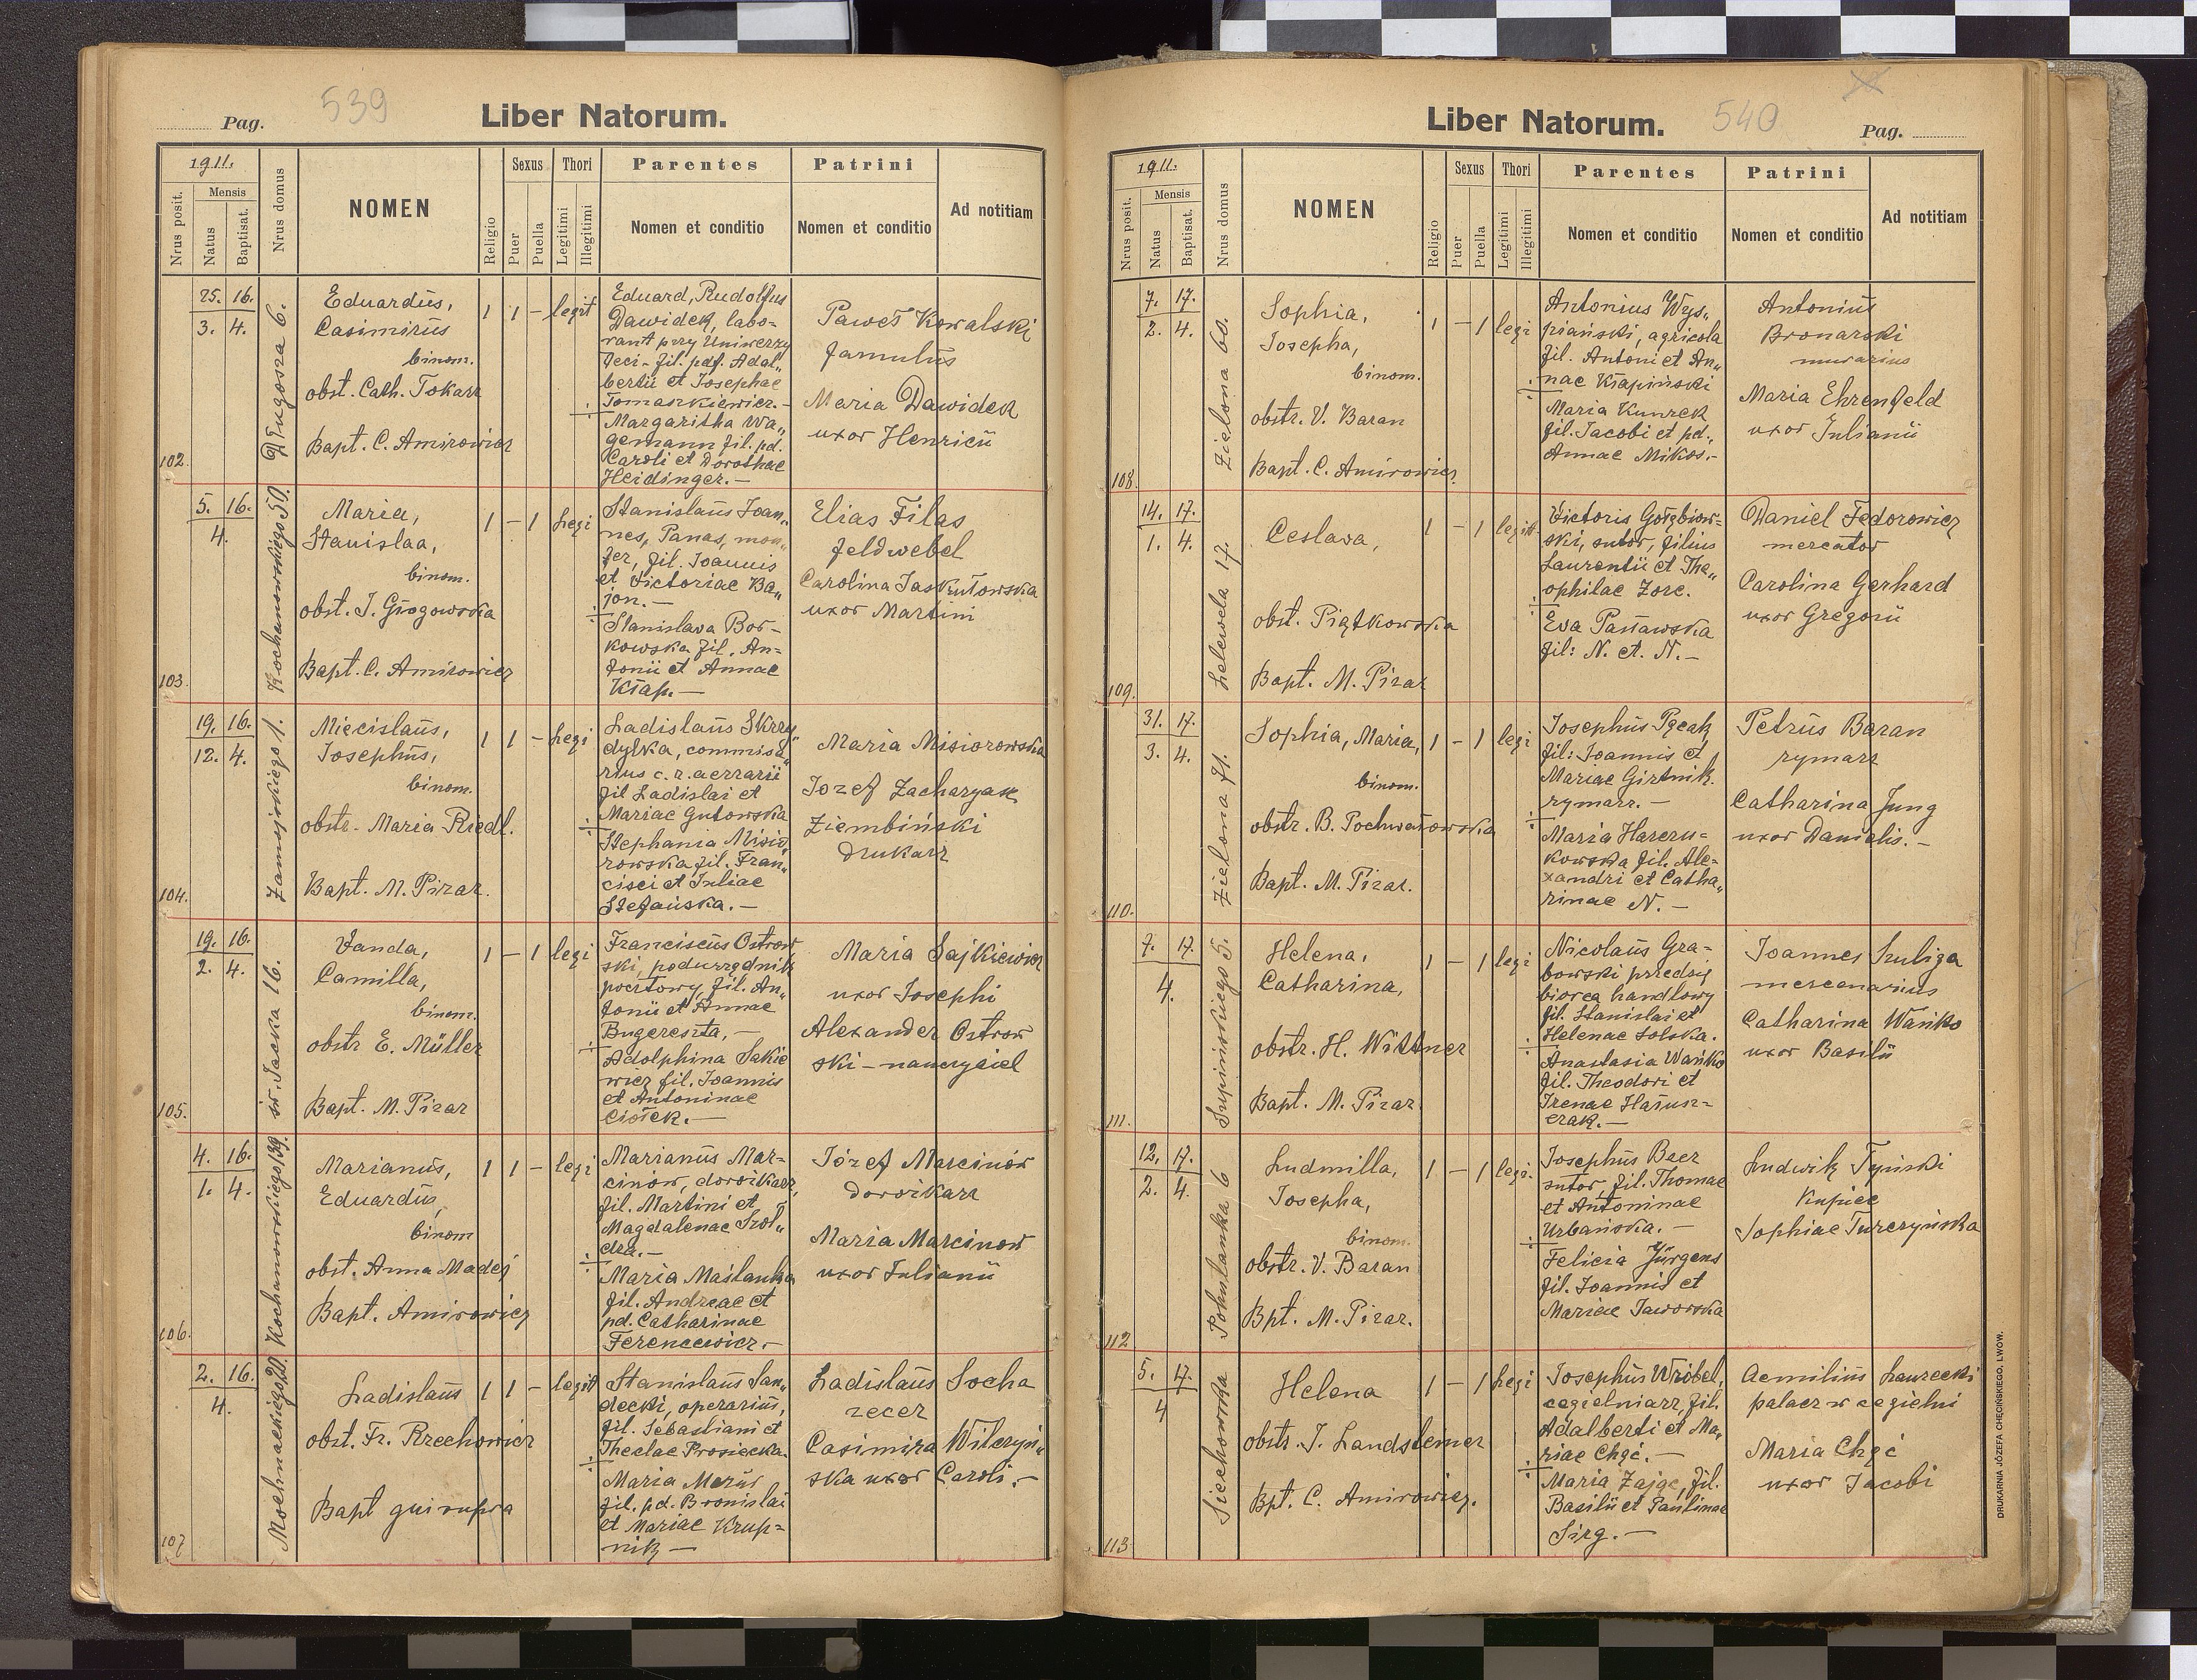 Pag. 539 Liber Natorum.
1911.
Nrus posit.
Mensis
Natus
Baptisat.
Nrus domus
NOMEN
Religio
Sexus
Puer
Puella
Thori
Legitimi
Illegitimi
Parentes
Nomen et conditio
Patrini
Nomen et conditio
Ad notitiam
102.
25. 16.
3. 4.
Długosza 6.
Eduardus,
Casimirus
binom.
obst. Cath. Tokarz
Bapt. C. Amirowicz
1 1 - legit
Eduard, Rudolfus
Dawidek, labo-
rant przy Uniwerzy
teci - fil. pdf. Adal„
bertii et Josephae
Tomaszkiewicz. -
Margaritha Wa„
gemann fil. pd.
Caroli et Dorothae
Heidinger. -
Paweł Kowalski
famulus
Maria Dawidek
uxor Henricii
103.
5. 16.
4.
Kochanowskiego 50.
Maria,
Stanislaa,
binom.
obst. J. Głogowska
Bapt. C. Amirowicz
1 - 1 Legi
Stanislaus Joan„
nes, Panas, mon„
ter, fil. Joannis
et Victoriae Ba„
jon. -
Stanislava Bor-
kowska fil. An-
tonii et Annae
Kłap. -
Elias Filas
feldwebel
Carolina Jaskułowska
uxor Martini
104.
19. 16.
12. 4.
Zamojskiego 1.
Miecislaus,
Josephus,
binom.
obstr. Maria Riedl.
Bapt. M. Pizar.
1 1 - Legi
Ladislaus Skrzy„
dylka, commisa„
rius c. r. aerrarii
fil Ladislai et
Mariae Gutowska
Stephania Misio„
rowska fil. Fran„
cisci et Juliae
Stefańska. -
Maria Misiorowska
Jozef Zacharyak
Ziembiński
drukarz
105.
19. 16.
2. 4.
św. Jacka 16.
Vanda,
Camilla,
binom.
obstr E. Müller
Bapt. M. Pizar
1 - 1 legi
Franciscus Ostrow
ski, podurzędnik
pocztowy, fil. An„
tonii et Annae
Bugereszta, -
Adolphina Sakie
wicz fil. Joannis
et Antoninae
Ciołek. -
Maria Sajkiewicz
uxor Josephi
Alexander Ostrow
ski - nauczyciel
106.
4. 16.
1. 4.
Kochanowskiego 139.
Marianus,
Eduardus,
binom
obst. Anna Madej
Bapt. Amirowicz
1 1 - legi
Marianus Mar-
cinów, dorożkarz,
fil. Martini et
Magdalenae Szoł„
dra. -
Maria Maślanka
fil. Andreae et
pd. Catharinae
Ferencewicz. -
Józef Marcinów
dorożkarz
Maria Marcinow
uxor Julianii
107
2. 16.
4.
Mochnackiego 20.
Ladislaus
obst. Fr. Rzechowicz
Bapt qui supra
1 1 - legit
Stanislaus San„
decki, operarius,
fil. Sebastiani et
Theclae Prosiecka.
Maria Meruś
fil. pd. Bronislai
et Mariae Krup-
nik -
Ladislaus Socha
zecer
Casimira Wilczyń„
ska uxor Caroli. -
Liber Natorum. 540 Pag.
1911.
Nrus posit.
Mensis
Natus
Baptisat.
Nrus domus
NOMEN
Religio
Sexus
Puer
Puella
Thori
Legitimi
Illegitimi
Parentes
Nomen et conditio
Patrini
Nomen et conditio
Ad notitiam
108.
7. 17.
2. 4.
Zielona 60.
Sophia,
Josepha,
binom.
obstr. V. Baran
Bapt. C. Amirowicz
1 - 1 legi
Antonius Wys„
piański, agricola
fil. Antoni et An„
nae Kłapiński
Maria Kunzek
fil. Jacobi et pd.„
Annae Mikos. -
Antonius
Bronarski
murarius
Maria Ehrenfeld
uxor Julianii
109.
14. 17.
1. 4.
Lelewela 17.
Ceslava,
obst. Piątkowska
Bapt. M. Pizar
1 - 1 legit
Victoris Gołębiow-
ski, sutor, filius
Laurentii et The„
ophilae Zorc.
Eva Passawska
fil: N. et. N. -
Daniel Fedorowicz
mercator
Carolina Gerhard
uxor Gregorii
110.
31. 17.
3. 4.
Zielona 71.
Sophia, Maria,
binom.
obstr. B. Pochwałowska
Bapt. M. Pizar.
1 - 1 legi
Josephus Pęcak
fil: Joannis et
Mariae Girtnik.
rymarz. -
Maria Harczu-
kowska fil. Ale-
xandri et Catha„
rinae N. -
Petrus Baran
rymarz
Catharina Jung
uxor Danielis. -
111.
7. 17.
4.
Supinskiego 5.
Helena,
Catharina,
obstr. H. Wittner
Bapt. M. Pizar
1 - 1 legi
Nicolaus Gra-
bowski przedsię
biorca handlowy
fil. Stanislai et
Helenae Solska.
Anastasia Wańko
fil. Theodori et
Irenae Hałusz-
czak. -
Joannes Szuliga
mercenarius
Catharina Wańko
uxor Basilii
112
12. 17.
2. 4.
Pohulanka 6
Ludmilla,
Josepha,
binom.
obstr. V. Baran
Bpt. M. Pizar.
1 - 1 legi.
Josephus Baer
sutor, fil. Thomae
et Antoninae
Urbańska. -
Felicia Jürgens
fil. Joannis et
Mariae Jaworska
Ludwik Typiski
Kupiec
Sophiae Turczyńska
113
5. 17.
4
Siechowska
Helena
obstr. J. Landsterner
Bpt. C. Amirowicz.
1 - 1 Legi
Josephus Wróbel,
cegielniarz, fil.
Adalberti et Ma„
riae Chęć. -
Maria Zając, fil.
Basilii et Paulinae
Sirg. -
Aemilius Laurecki
palacz w cegielni
Maria Chęć
uxor Jacobi
DRUKARNIA JÓZEFA CHĘCIŃSKIEGO, LWOW.